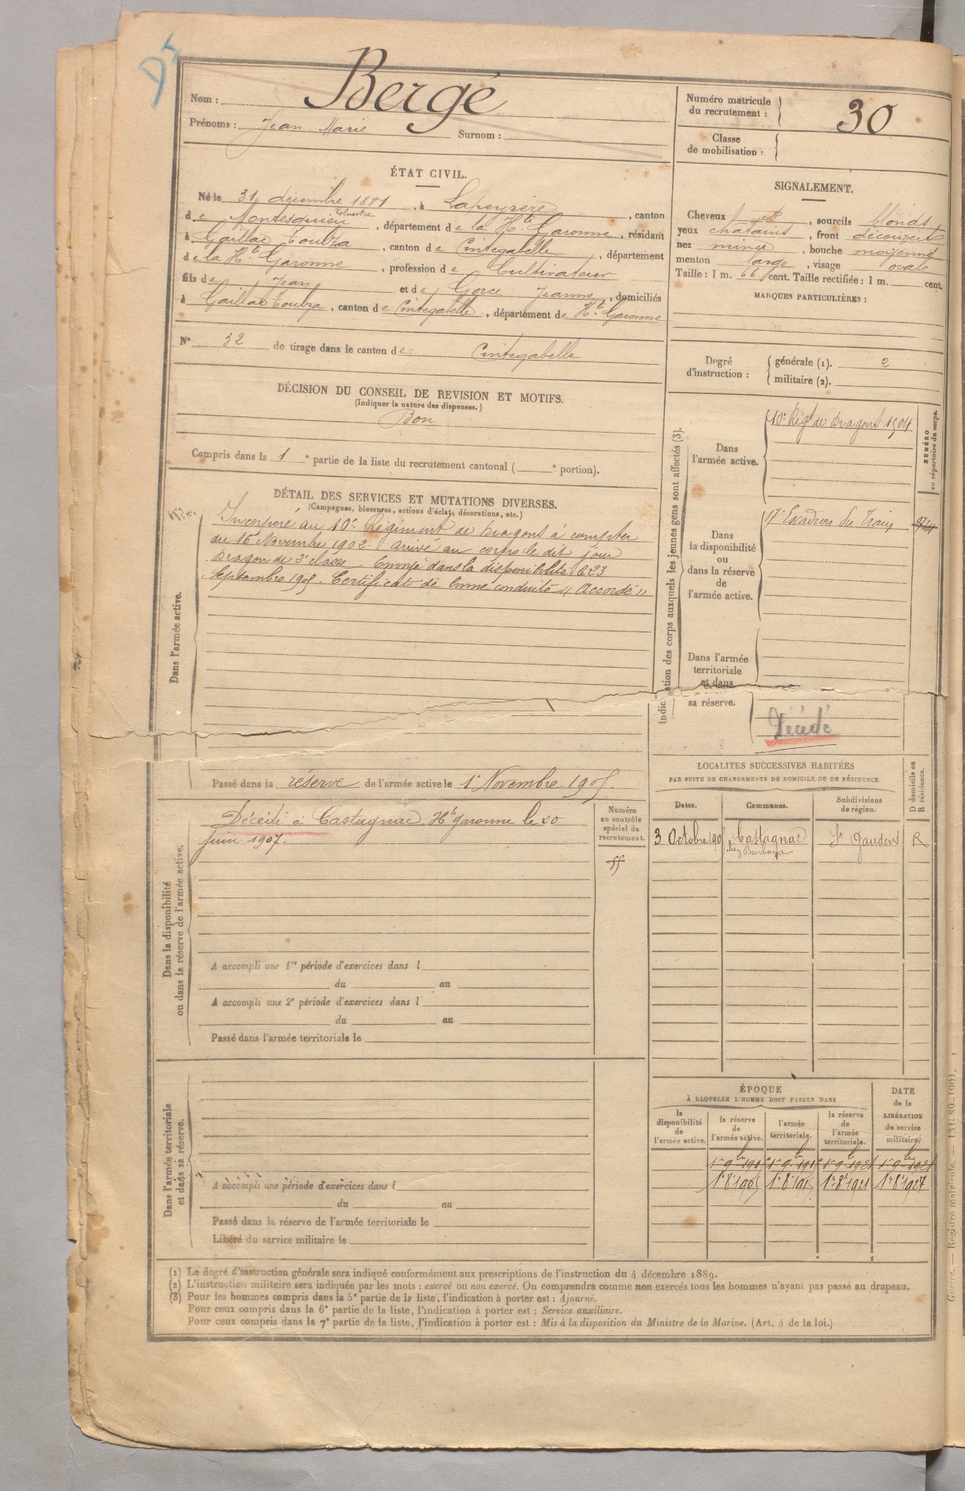 Nom : Bergé
Prénoms : Jean Marie Surnom :
Numéro matricule du recrutement : 30
Classe de mobilisation :
ÉTAT CIVIL.
Né le 31 décembre 1881, à Lapeyrère, canton
de Montesquieu Volvestre, département de la Hte Garonne, résidant
à Gaillac Toulza, canton de Cintegabelle, département
de la Hte Garonne, profession de Cultivateur
fils de Jean et de Gorce Jeanne, domiciliés
à Gaillac Toulza, canton de Cintegabelle, département de Hte Garonne
N° 32 de tirage dans le canton de Cintegabelle
SIGNALEMENT.
Cheveux , sourcils blonds
yeux chatains, front découvert
nez mince, bouche moyenne
menton large, visage ovale
Taille : 1 m. 66 cent. Taille rectifiée : 1 m. cent.
MARQUES PARTICULIÈRES :
Degré d'instruction : générale (1). 2
militaire (2).
DÉCISION DU CONSEIL DE REVISION ET MOTIFS.
(Indiquer la nature des dispenses.)
Bon
Compris dans la 1e partie de la liste du recrutement cantonal ( e portion).
DÉTAIL DES SERVICES ET MUTATIONS DIVERSES.
(Campagnes, blessures, actions d'éclat, décorations, etc.)
Dans l'armée active.
Incorporé au 10e Régiment de Dragons à compter
du 16 Novembre 1902. Arrivé au corps le dit jour
Dragon de 2e classe. Envoyé dans la disponibilité le 23
Septembre 1905. Certificat de bonne conduite "Accordé"
Passé dans la réserve de l'armée active le 1er Novembre 1905.
Indication des corps auxquels les jeunes gens sont affectés (3).
NUMÉRO au répertoire du corps.
Dans l'armée active.
10e Régt de Dragons 1904
Dans la disponibilité ou dans la réserve de l'armée active.
17e Escadron du Train
Dans l'armée territoriale et dans sa réserve.
Décédé
Dans la disponibilité ou dans la réserve de l'armée active.
Décédé à Castagnac Hte Garonne le 20
juin 1907.
Numéro au contrôle spécial du recrutement.
A accompli une 1re période d'exercices dans l
du au
A accompli une 2e période d'exercices dans l
du au
Passé dans l'armée territoriale le
LOCALITÉS SUCCESSIVES HABITÉES
PAR SUITE DE CHANGEMENTS DE DOMICILE OU DE RÉSIDENCE.
Dates. Communes. Subdivisions de région. D domicile ou R résidence.
3 Octobre 1905 Castagnac St Gaudens R
Dans l'armée territoriale et dans sa réserve.
A accompli une période d'exercices dans l
du au
Passé dans la réserve de l'armée territoriale le
Libéré du service militaire le
ÉPOQUE
À LAQUELLE L'HOMME DOIT PASSER DANS
la disponibilité de l'armée active. la réserve de l'armée active. l'armée territoriale. la réserve de l'armée territoriale.
DATE de la LIBÉRATION du service militaire.
(1) Le degré d'instruction générale sera indiqué conformément aux prescriptions de l'instruction du 4 décembre 1889.
(2) L'instruction militaire sera indiquée par les mots : exercé ou non exercé. On comprendra comme non exercés tous les hommes n'ayant pas passé au drapeau.
(3) Pour les hommes compris dans la 5e partie de la liste, l'indication à porter est : Ajourné.
Pour ceux compris dans la 6e partie de la liste, l'indication à porter est : Service auxiliaire.
Pour ceux compris dans la 7e partie de la liste, l'indication à porter est : Mis à la disposition du Ministre de la Marine. (Art. 4 de la loi.)